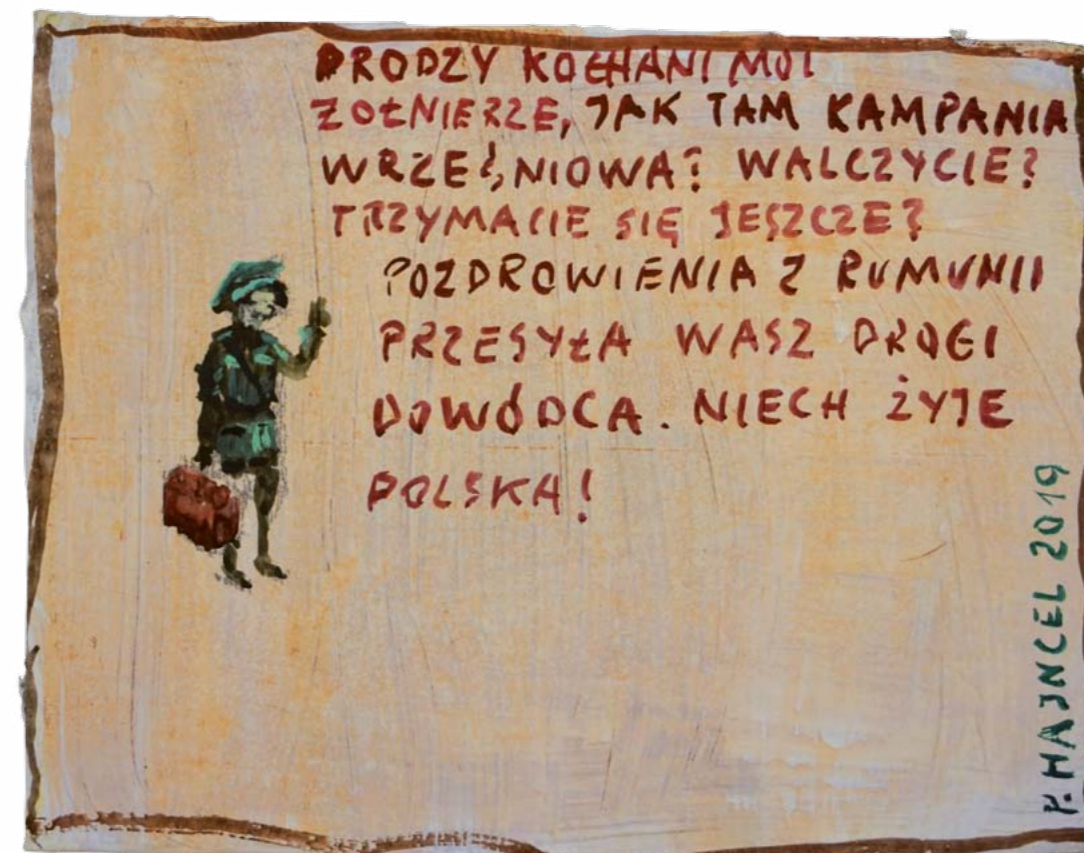 DRODZY KOCHANI MOI
ŻOŁNIERZE, JAK TAM KAMPANIA
WRZEŚNIOWA? WALCZYCIE?
TRZYMACIE SIĘ JESZCZE?
POZDROWIENIA Z RUMUNII
PRZESYŁA WASZ DROGI
DOWÓDCA. NIECH ŻYJE
POLSKA!
P. HAJNCEL 2019